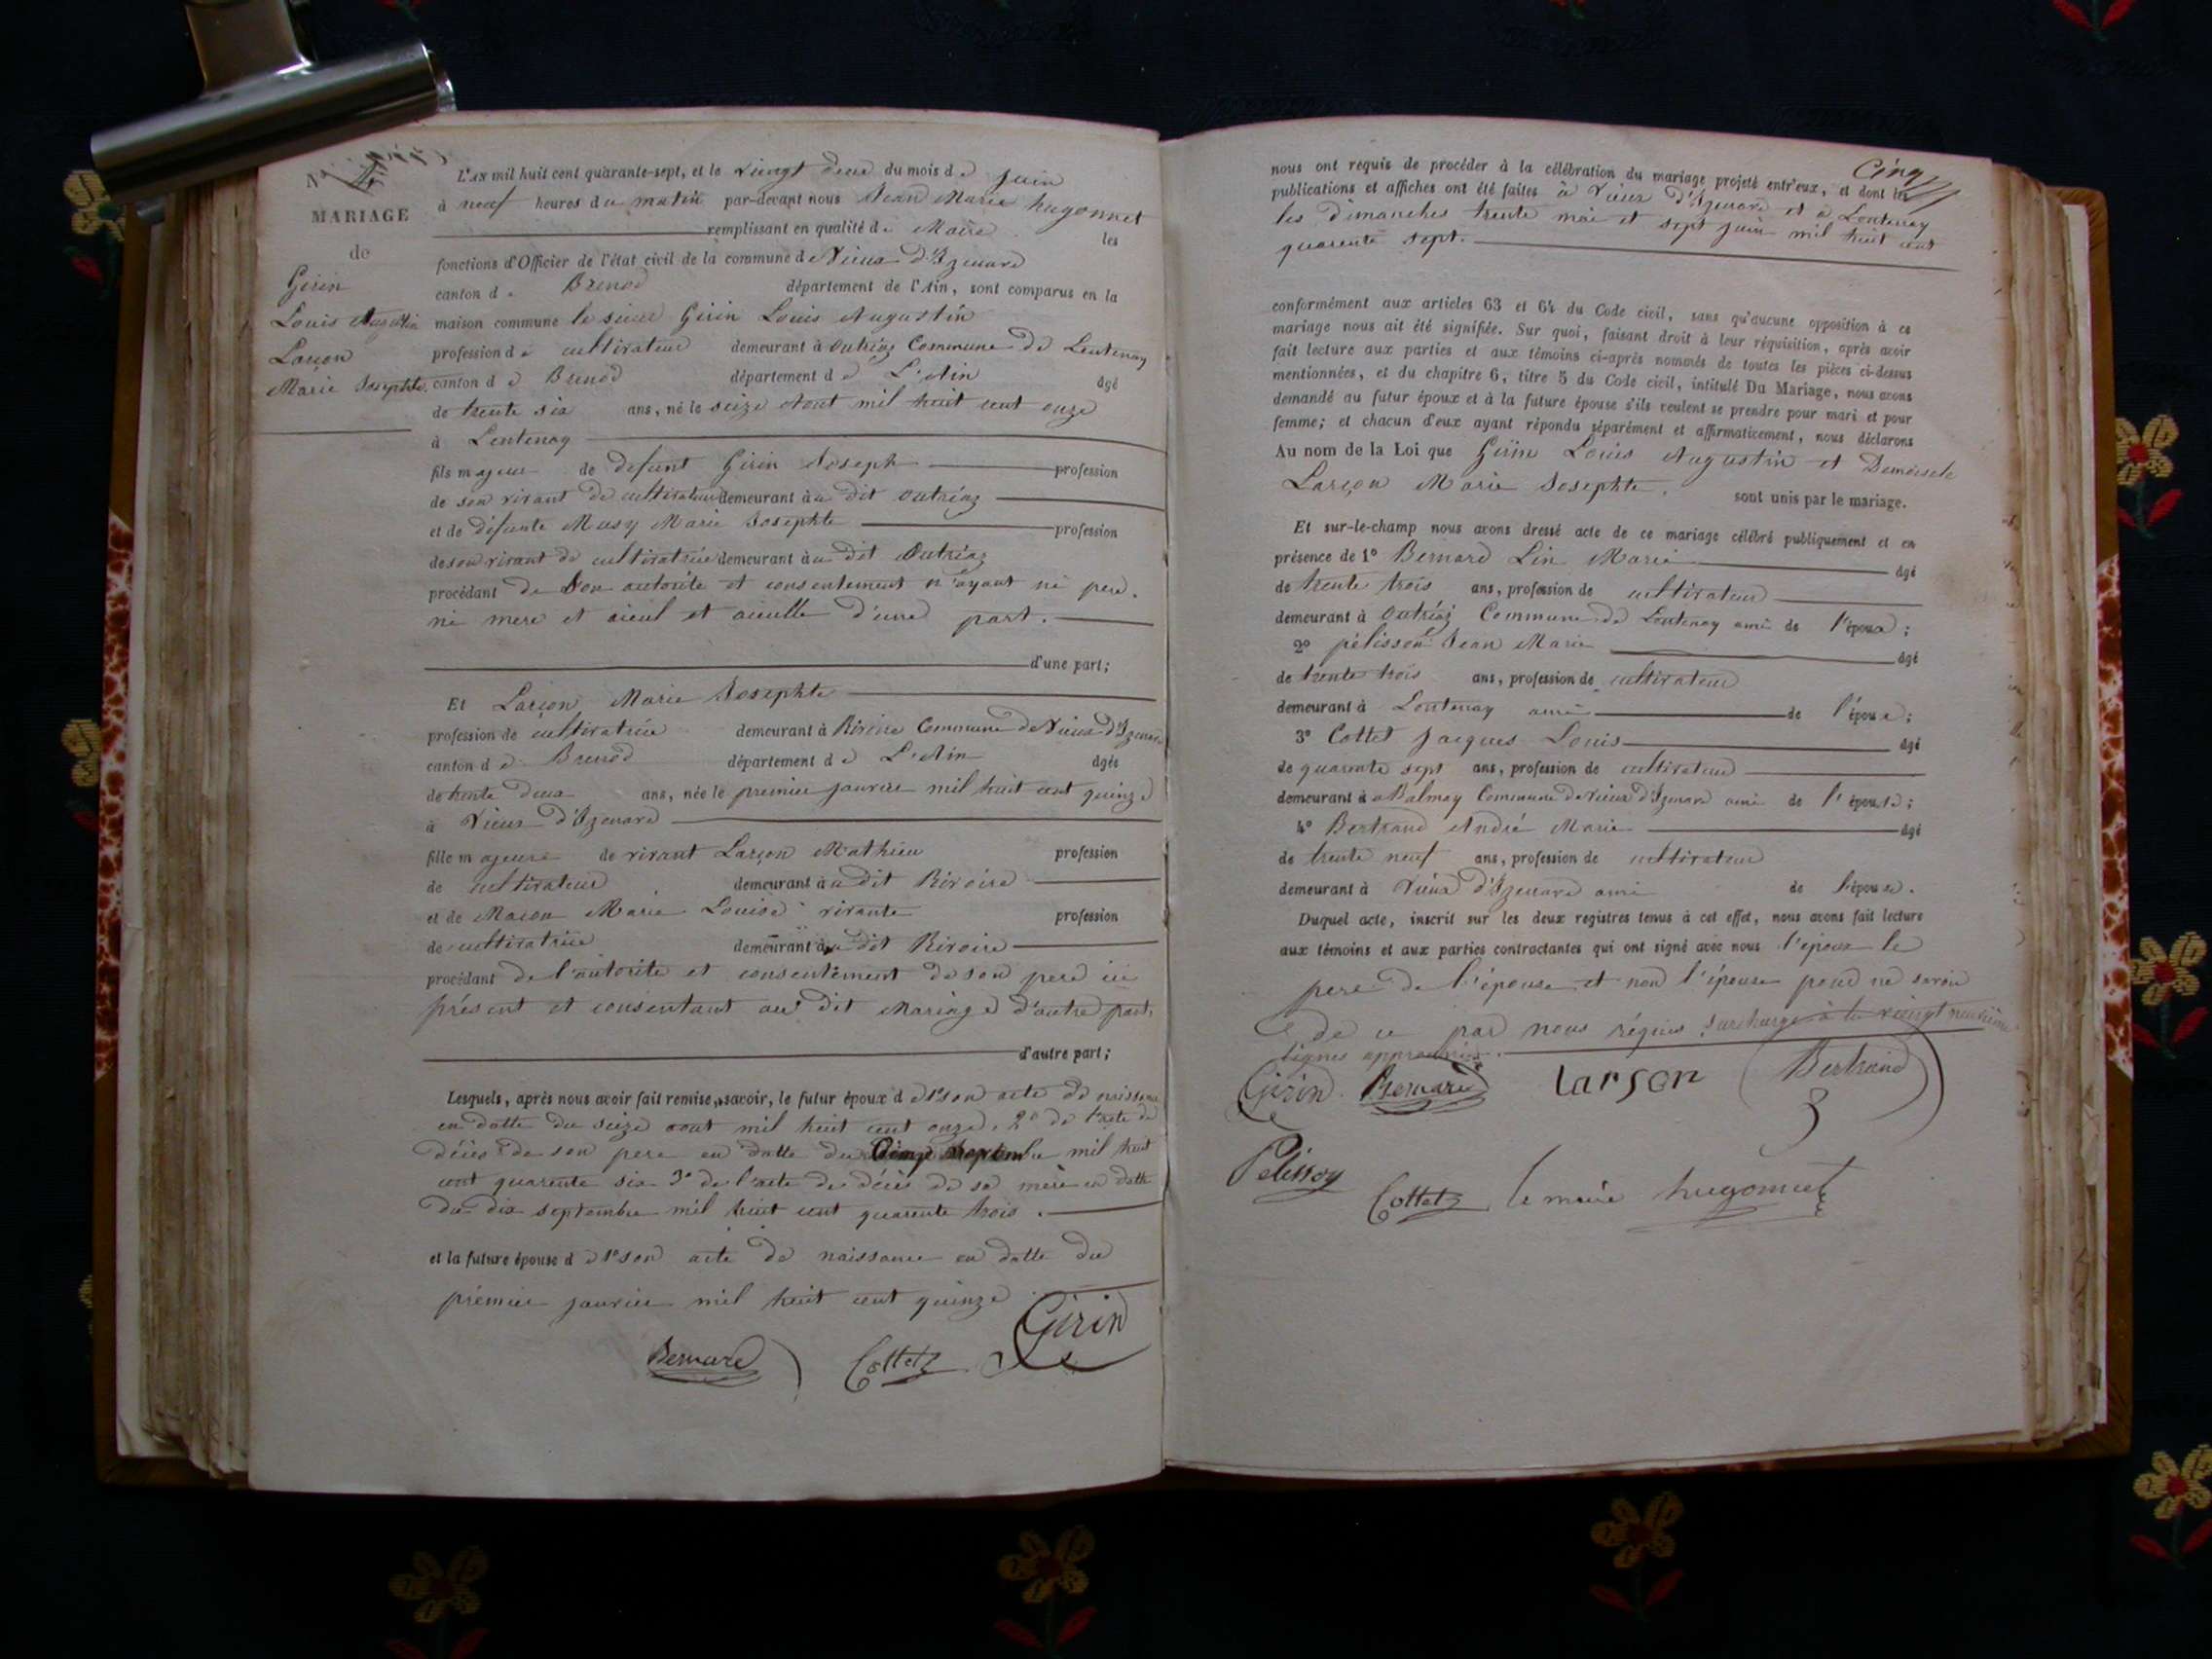 MARIAGE
de
Girin
Louis Augustin
Larçon
Marie Josephte.
L'an mil huit cent quarante-sept, et le vingt deux du mois de juin
à neuf heures du matin par-devant nous Jean Marie hugonnet
remplissant en qualité de Maire les
fonctions d'Officier de l'état civil de la commune de Vieux d'Izenave
canton de Brenod département de l'Ain, sont comparus en la
maison commune le sieur Girin Louis Augustin
profession de cultivateur demeurant à outriaz Commune de Lentenay
canton de Brenod département de L'Ain âgé
de trente six ans, né le seize Aout mil huit cent onze
à Lentenay
fils majeur de defunt Girin Joseph profession
de son vivant de cultivateur demeurant à u dit outriaz
et de défunte Musy Marie Josephte profession
de son vivant de cultivatrice demeurant à u dit Outriaz
procédant de Son autorite et consentement n'ayant ni pere.
ni mere et aieul et aieulle d'une part.
d'une part;
Et Larçon Marie Josephte
profession de cultivatrice demeurant à Rivoire Commune de Vieux d'Izenave
canton de Brenod département de L'Ain âgée
de trente deux ans, née le premier janvier mil huit cent quinze
à Vieux d'Izenave
fille majeure de vivant Larçon Mathieu profession
de cultivateur demeurant à u dit Rivoire
et de Macon Marie Louise vivante profession
de cultivatrice demeurant à u dit Rivoire
procédant de l'autorite et consentement de son pere ici
présent et consentant au dit Mariage d'autre part,
d'autre part;
Lesquels, après nous avoir fait remise, savoir, le futur époux de 1° son acte de naissance
en datte du seize aout mil huit cent onze, 2° de l'acte de
décès de son pere en datte du Cinq septembre mil huit
cent quarente six 3° de l'acte de décès de sa mère en datte
du dix septembre mil huit cent quarente trois.
et la future épouse de 1° son acte de naissance en datte du
premier janvier mil huit cent quinze
Bernard Cottet Girin
Cinq
nous ont requis de procéder à la célébration du mariage projeté entr'eux, et dont les
publications et affiches ont été faites à Vieux d'Izenave et à Lentenay
les dimanches trente mai et sept juin mil huit cent
quarente sept.
conformément aux articles 63 et 64 du Code civil, sans qu'aucune opposition à ce
mariage nous ait été signifiée. Sur quoi, faisant droit à leur réquisition, après avoir
fait lecture aux parties et aux témoins ci-après nommés de toutes les pièces ci-dessus
mentionnées, et du chapitre 6, titre 5 du Code civil, intitulé Du Mariage, nous avons
demandé au futur époux et à la future épouse s'ils veulent se prendre pour mari et pour
femme; et chacun d'eux ayant répondu séparément et affirmativement, nous déclarons
Au nom de la Loi que Girin Louis Augustin et Demoiselle
Larçon Marie Josephte. sont unis par le mariage.
Et sur-le-champ nous avons dressé acte de ce mariage célébré publiquement et en
présence de 1° Bernard Lin Marie âgé
de trente trois ans, profession de cultivateur
demeurant à outriaz Commune de Lentenay ami de l'époux;
2° pélisson Jean Marie âgé
de trente trois ans, profession de cultivateur
demeurant à Lentenay ami de l'époux;
3° Cottet Jacques Louis âgé
de quarente sept ans, profession de cultivateur
demeurant à Balmay Commune de Vieux d'Izenave ami de l'épouse;
4° Bertrand André Marie âgé
de trente neuf ans, profession de cultivateur
demeurant à Vieux d'Izenave ami de l'épouse.
Duquel acte, inscrit sur les deux registres tenus à cet effet, nous avons fait lecture
aux témoins et aux parties contractantes qui ont signé avec nous l'époux le
pere de l'épouse et non l'épouse pour ne savoir
de ce par nous réquis. Surcharge à la vingt neuvième
lignes approuvée.
Girin Bernard Larson Bertrand
Pelisson
Cottet le maire hugonnet